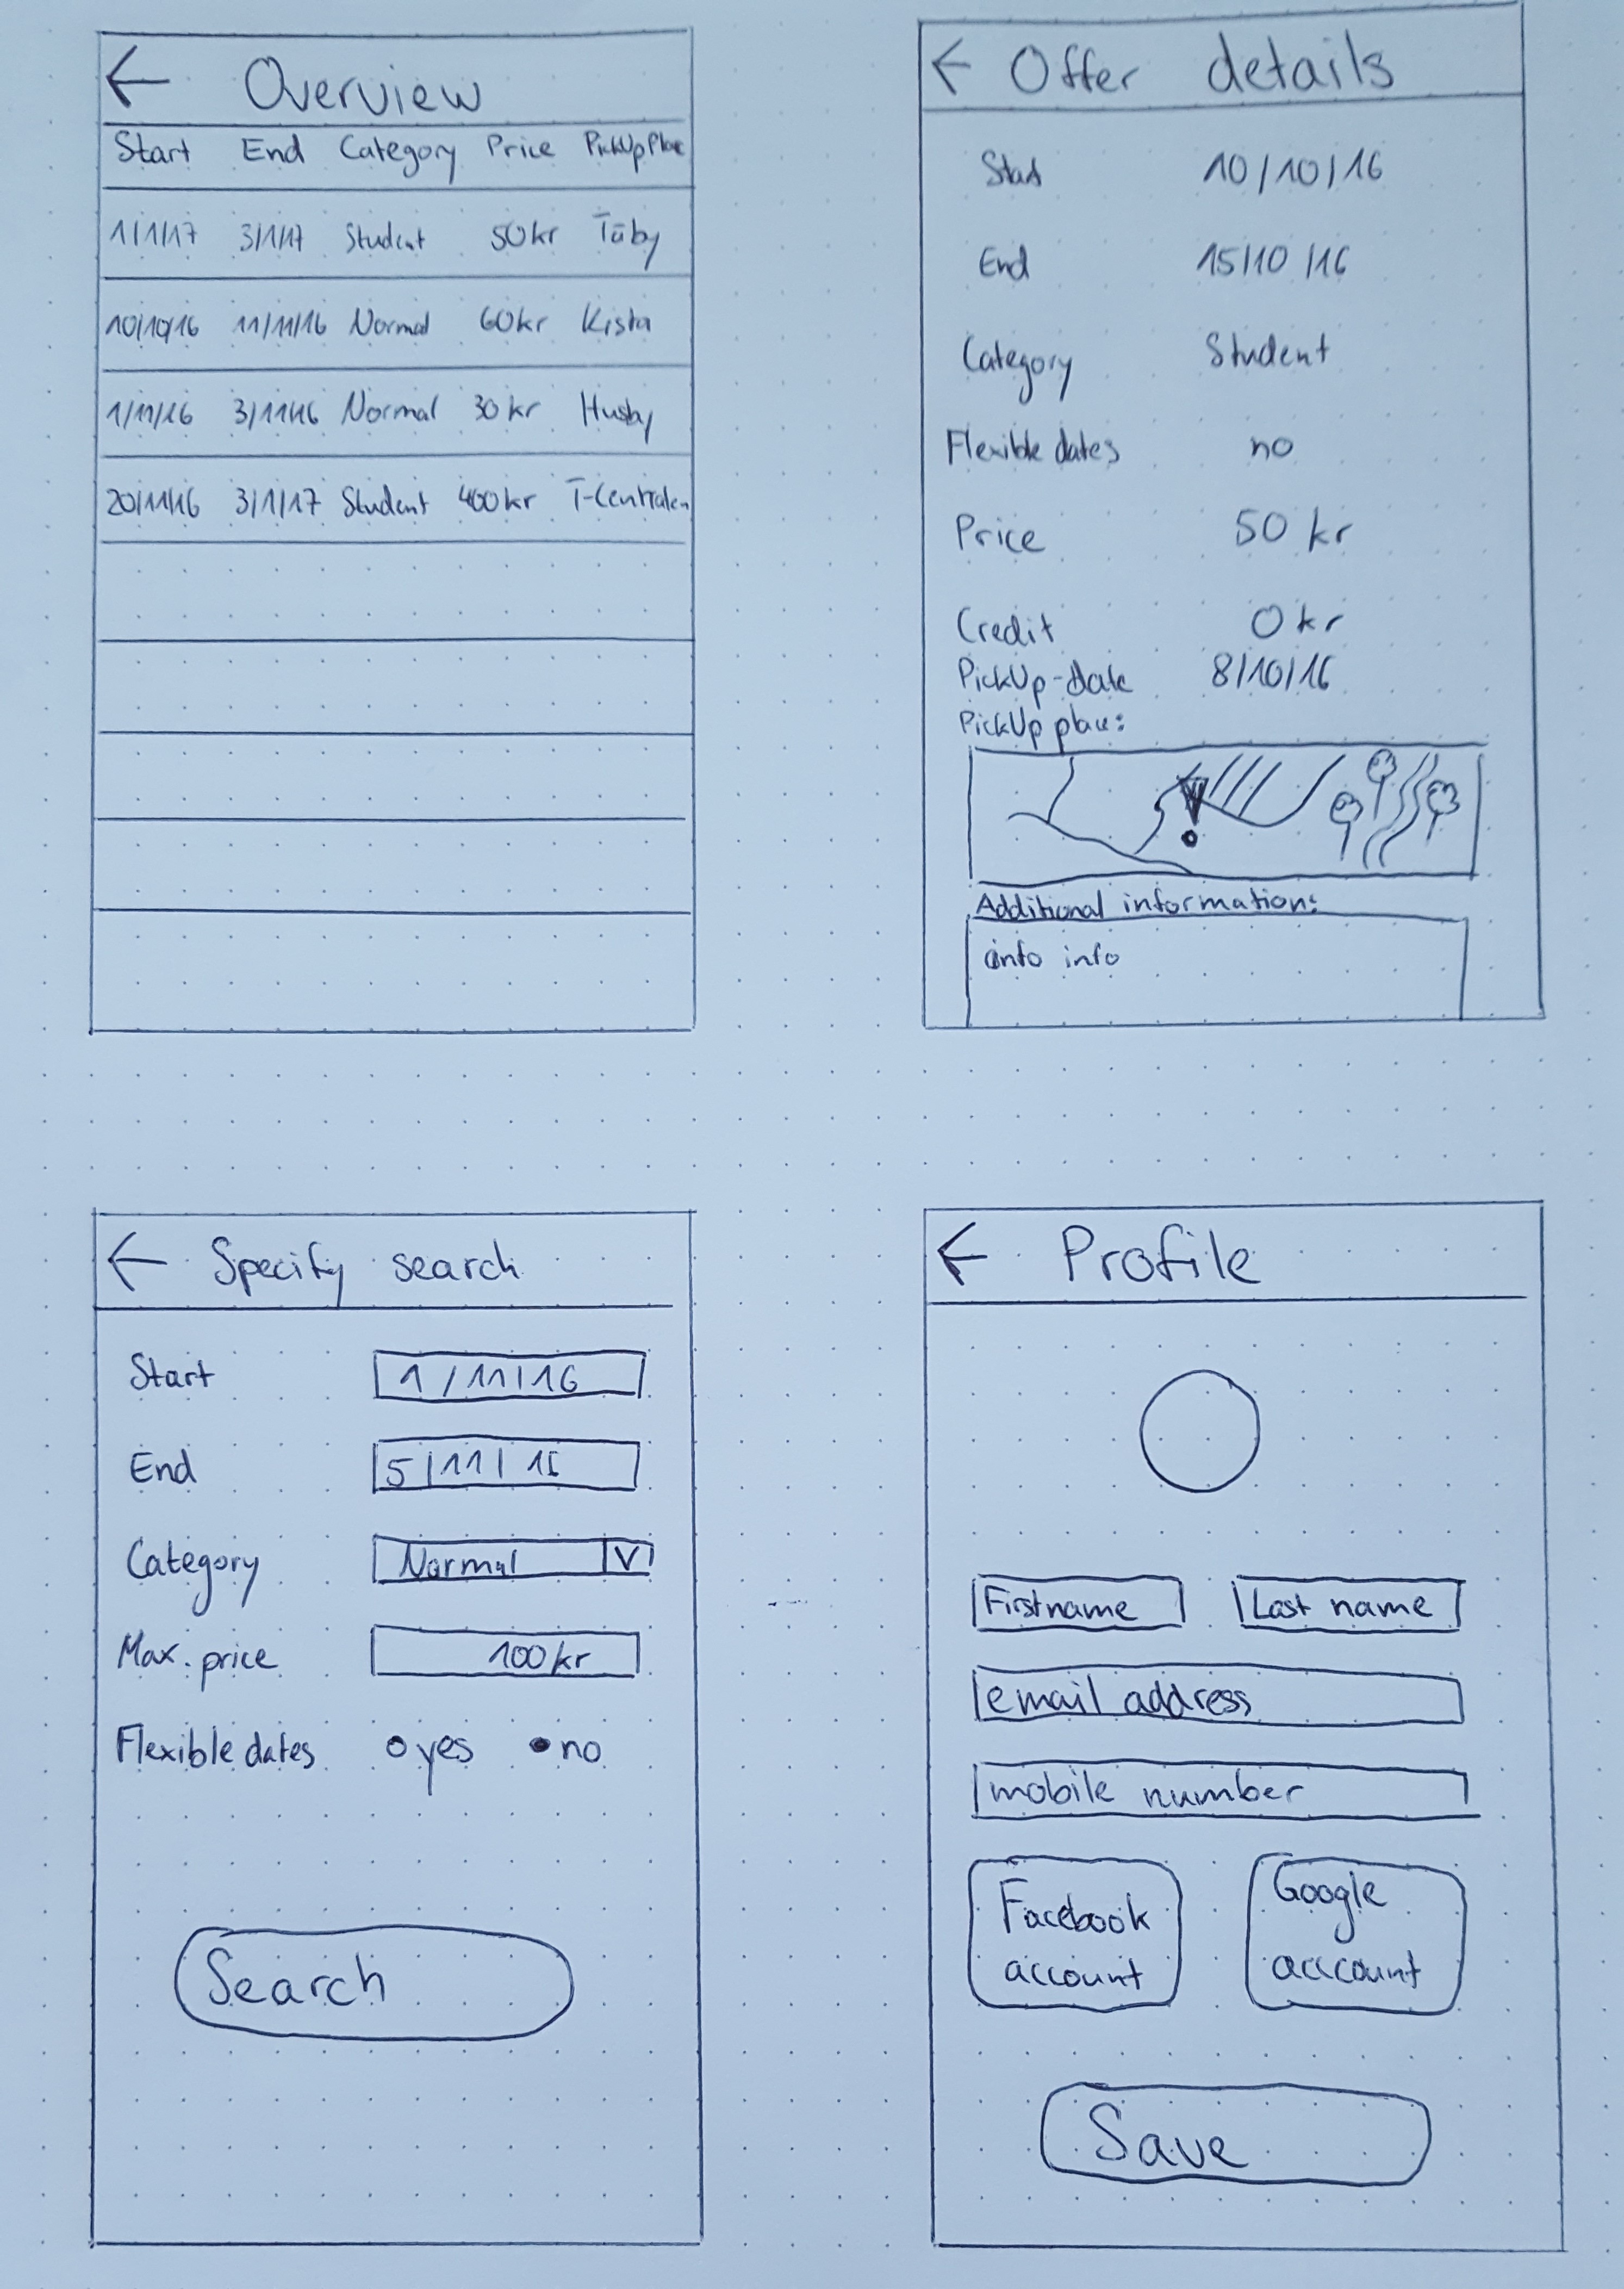 ← Overview
Start End Category Price PickUp Place
1/1/17 3/1/17 Student 50kr Täby
10/10/16 11/11/16 Normal 60kr Kista
1/11/16 3/11/16 Normal 30kr Husby
20/11/16 3/1/17 Student 400kr T-Centralen
← Offer details
Start 10/10/16
End 15/10/16
Category Student
Flexible dates no
Price 50 kr
Credit 0kr
PickUp-date 8/10/16
PickUp place:
Additional information:
info
← Specify search
Start 1/11/16
End 5/11/16
Category Normal V
Max. price 100kr
Flexible dates yes no
Search
← Profile
Firstname Last name
email address
mobile number
Facebook
account
Google
account
Save